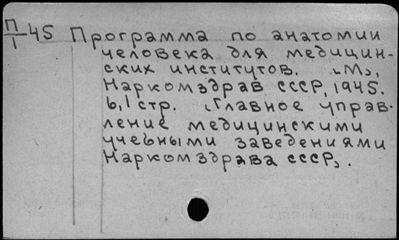 П/I 45 Программа по анатомии
человека для медицин-
ских институтов. [М],
Наркомздрав СССР, 1945.
6,1 стр. [Главное управ-
ление медицинскими
учебными заведениями
Наркомздрава СССР].